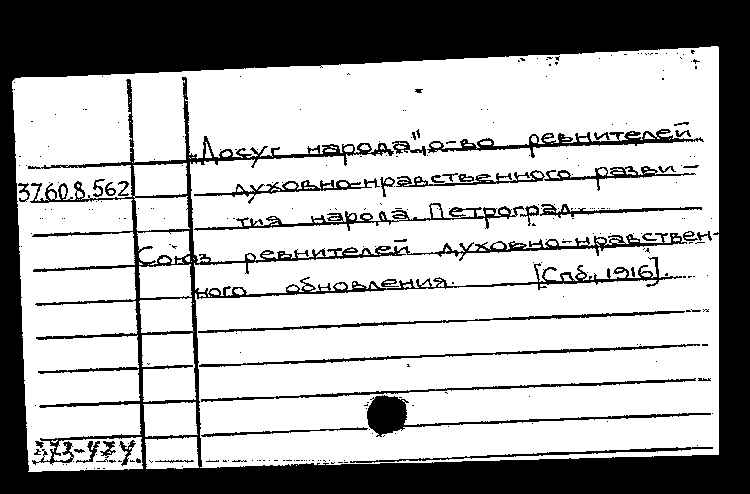 „Досуг народа", о-во ревнителей
37.60.8.562 духовно-нравственного разви-
тия народа. Петроград.
Союз ревнителей духовно-нравствен-
ного обновления. [Спб., 1916].